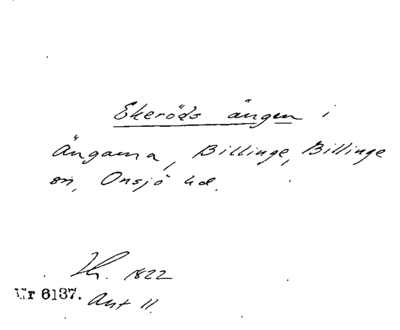 Ekeröds ängen i
Ängarna, Billinge, Billinge
sn, Onsjö hd.
Hr. 1822
Nr 6137. Ant 11.